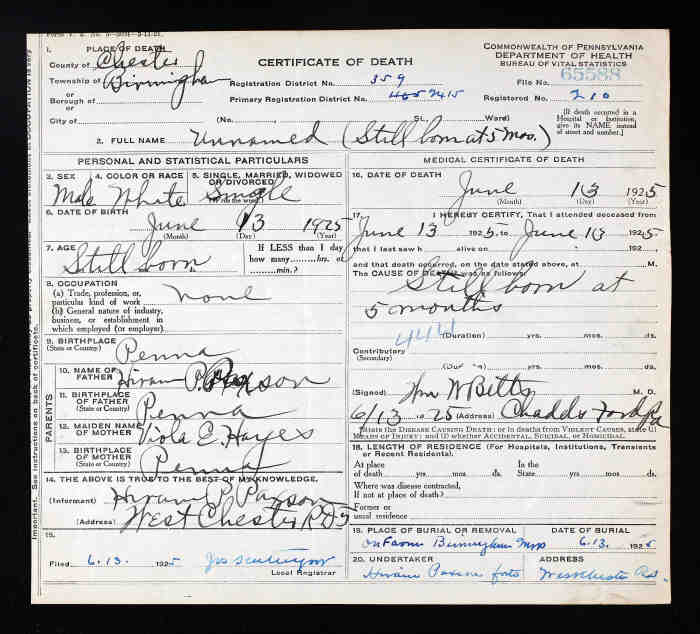 1. PLACE OF DEATH
County of Chester
Township of Birmingham
or
Borough of
or
City of (No. St., Ward)
CERTIFICATE OF DEATH
Registration District No. 359
Primary Registration District No.
COMMONWEALTH OF PENNSYLVANIA
DEPARTMENT OF HEALTH
BUREAU OF VITAL STATISTICS
File No. 65588
Registered No. 210
[If death occurred in a
Hospital or Institution,
give its NAME instead
of street and number.]
2. FULL NAME Unnamed (Still born at 5 Mos.)
PERSONAL AND STATISTICAL PARTICULARS
3. SEX
Male
4. COLOR OR RACE
White
5. SINGLE, MARRIED, WIDOWED
OR DIVORCED
(Write the word)
Single
6. DATE OF BIRTH
June 13 1925
(Month) (Day) (Year)
7. AGE
Still born
If LESS than 1 day
how many hrs. or
min.?
8. OCCUPATION
(a) Trade, profession, or,
particular kind of work none
(b) General nature of industry,
business, or establishment in
which employed (or employer)
9. BIRTHPLACE
(State or Country) Penna
PARENTS
10. NAME OF
FATHER Hiram P. Paxson
11. BIRTHPLACE
OF FATHER
(State or Country) Penna
12. MAIDEN NAME
OF MOTHER Viola E. Hayes
13. BIRTHPLACE
OF MOTHER
(State or Country) Penna
14. THE ABOVE IS TRUE TO THE BEST OF MY KNOWLEDGE.
(Informant) Hiram P. Paxson
(Address) West Chester R D 5
15.
Filed 6.13. 1925
Local Registrar
MEDICAL CERTIFICATE OF DEATH
16. DATE OF DEATH
June 13 1925
(Month) (Day) (Year)
17. I HEREBY CERTIFY, That I attended deceased from
June 13 1925, to June 13 1925
that I last saw h alive on 192
and that death occurred, on the date stated above, at M.
The CAUSE OF DEATH was as follows:
Still born at
5 months
(Duration) yrs. mos. ds.
Contributory
(Secondary)
(Duration) yrs. mos. ds.
(Signed) Wm W Betts M. D.
6/13 1925 (Address) Chadds Ford Pa
State the DISEASE CAUSING DEATH; or in deaths from VIOLENT CAUSES, state (1)
MEANS OF INJURY; and (2) whether ACCIDENTAL, SUICIDAL, or HOMICIDAL.
18. LENGTH OF RESIDENCE (For Hospitals, Institutions, Transients
or Recent Residents).
At place In the
of death yrs. mos. ds. State yrs. mos. ds.
Where was disease contracted,
If not at place of death?
Former or
usual residence
19. PLACE OF BURIAL OR REMOVAL
On Farm Birmingham Twp
DATE OF BURIAL
6.13. 1925
20. UNDERTAKER
Hiram Paxson
ADDRESS
West Chester
Important. See instructions on back of certificate.